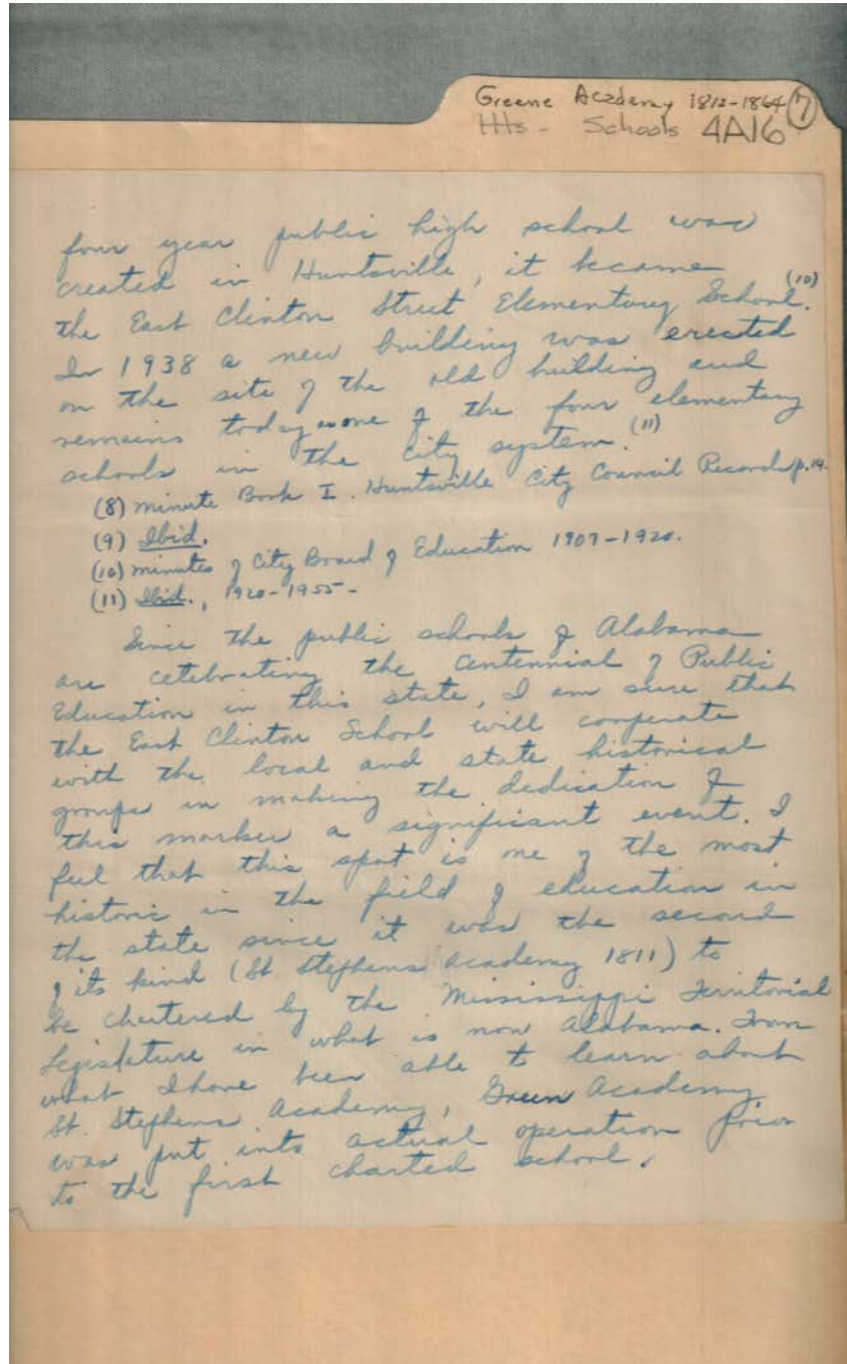 Greene Academy 1812-1864 (7)
Hts - Schools 4A16
four year public high school was
created in Huntsville, it became
the East Clinton Street Elementary School. (10)
In 1938 a new building was erected
on the site of the old building and
remains today as one of the four elementary
schools in the city system. (11)
(8) Minute Book I. Huntsville City Council Records p.14.
(9) Ibid.
(10) Minutes of City Board of Education 1907-1920.
(11) Ibid., 1920-1955-
Since the public schools of Alabama
are celebrating the Centennial of Public
Education in this state, I am sure that
the East Clinton School will cooperate
with the local and state historical
groups in making the dedication of
this marker a significant event. I
feel that this spot is one of the most
historic in the field of education in
the state since it was the second
of its kind (St Stephens Academy 1811) to
be chartered by the Mississippi Territorial
Legislature in what is now Alabama. From
what I have been able to learn about
St. Stephens Academy, Green Academy
was put into actual operation prior
to the first charted school.